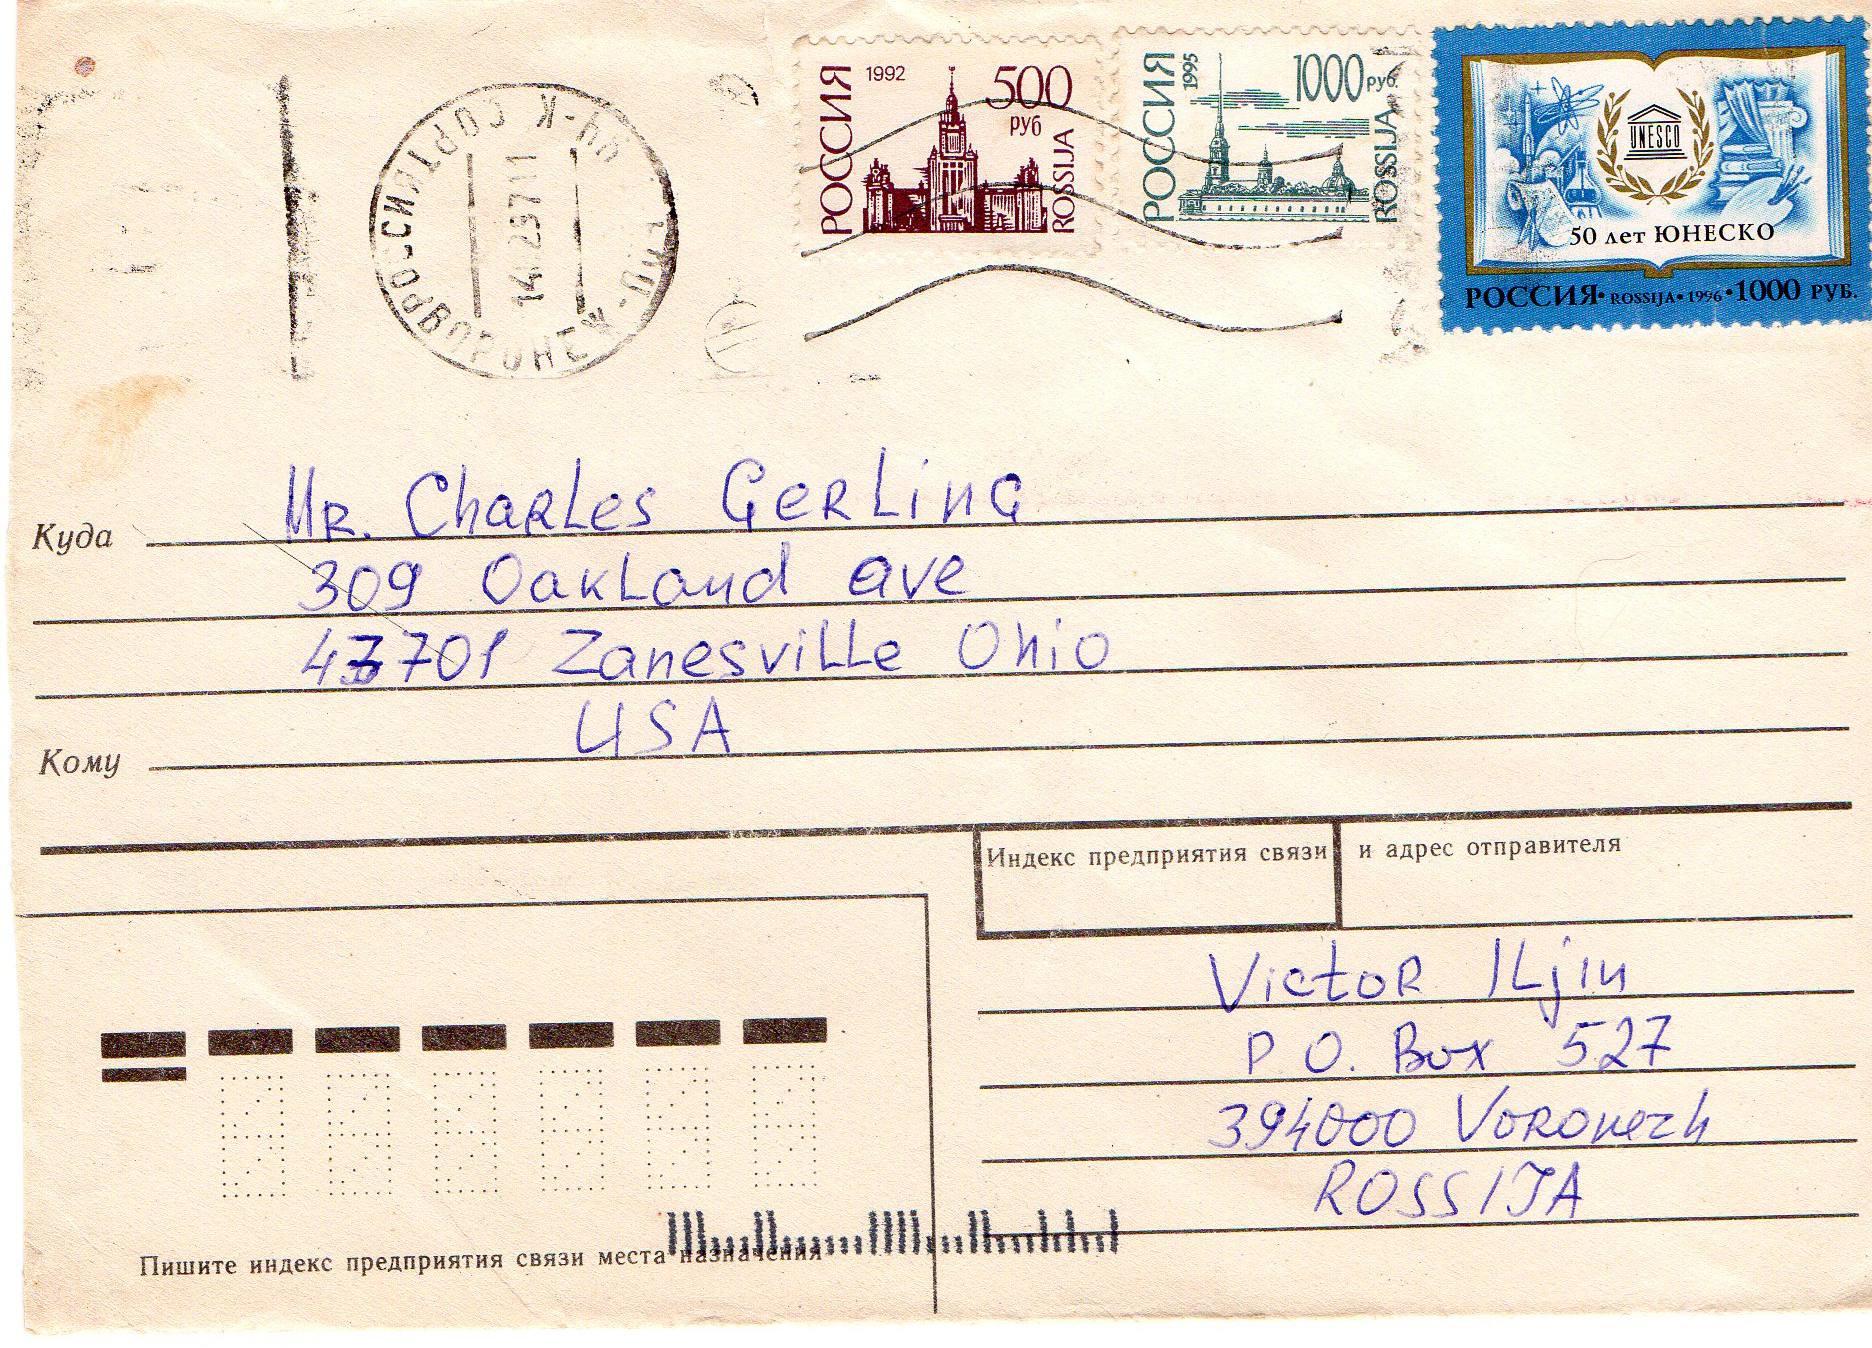 РОССИЯ 1992 500 руб ROSSIJA
РОССИЯ 1995 1000 руб. ROSSIJA
UNESCO
50 лет ЮНЕСКО
РОССИЯ • ROSSIJA • 1996 • 1000 РУБ.
ВОРОНЕЖ
Куда Mr. Charles Gerling
309 Oakland ave
43701 Zanesville Ohio
USA
Кому
Индекс предприятия связи и адрес отправителя
Victor Iljin
P.O. Box 527
394000 Voronezh
ROSSIJA
Пишите индекс предприятия связи места назначения